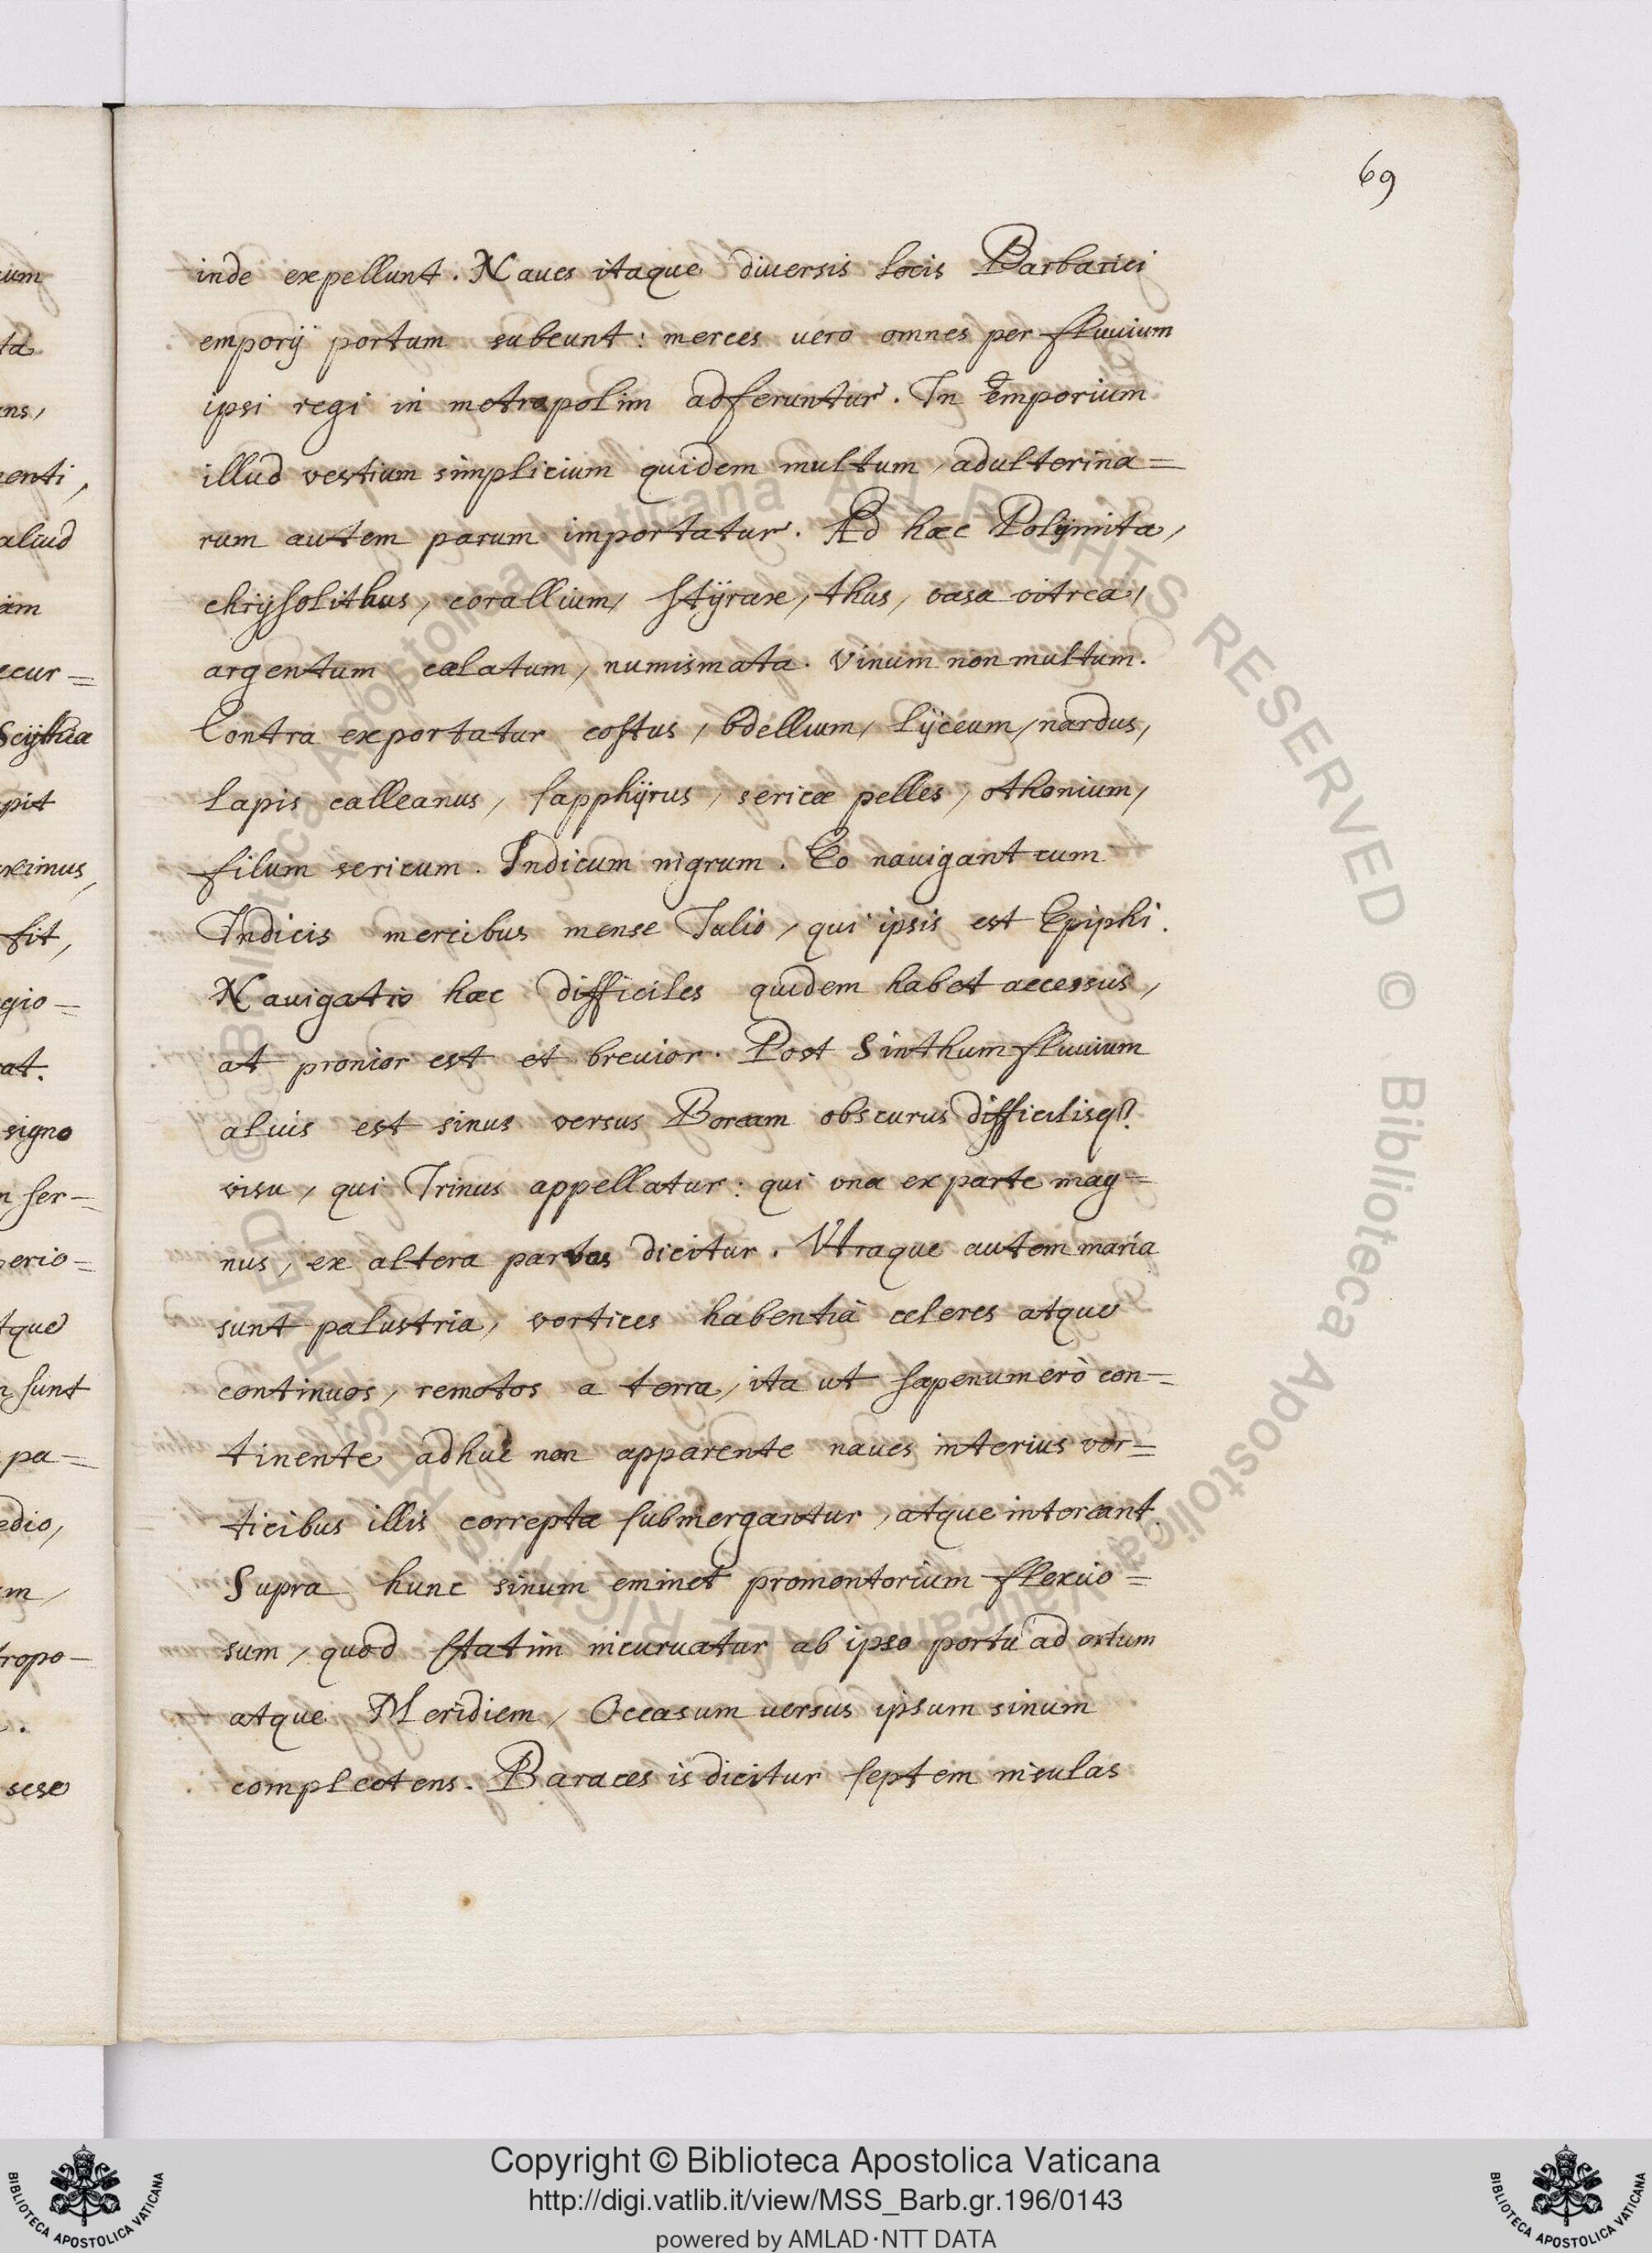 69
inde expellunt. Naues itaque diuersis locis Barbarici
emporÿ portum subeunt: merces uero omnes per fluuium
ipsi regi in metropolim adferuntur. In Emporium
illud vestium simplicium quidem multum, adulterina=
rum autem parum importatur. Ad hæc Polymita,
chrysolithus, corallium, styrax, thus, vasa vitrea,
argentum cælatum, numismata. Vinum non multum.
Contra exportatur costus, bdellium, lyceum, nardus,
lapis calleanus, sapphyrus, sericæ pelles, othonium,
filum sericum. Indicum nigrum. Eo nauigant cum
Indicis mercibus mense Julio, qui ipsis est Epiphi.
Nauigatio hæc difficiles quidem habet accessus,
at pronior est et breuior. Post Sinthum fluuium
alius est sinus versus Boream obscurus difficilisq3
visu, qui Irinus appellatur: qui una ex parte mag=
nus, ex altera paruus dicitur. Utraque autem maria
sunt palustria, vortices habentia celeres atque
continuos, remotos a terra, ita ut sæpenumerò con=
tinente adhuc non apparente naues interius vor=
ticibus illis correptæ submergantur, atque intereant.
Supra hunc sinum eminet promontorium flexuo=
sum, quod statim incuruatur ab ipso portu ad ortum
atque Meridiem, Occasum uersus ipsum sinum
complectens. Baraces is dicitur septem insulas
ium
ta
ens,
nenti,
aliud
iam
ecur=
Scythiæ
pit
ximus,
fit,
gio=
rat.
signo
n ser=
perio=
tque
n sunt
pa=
edio,
em,
tropo=
sese
© Biblioteca Apostolica Vaticana ALL RIGHTS RESERVED © Biblioteca Apostolica Vaticana ALL RIGHTS RESERVED
Copyright © Biblioteca Apostolica Vaticana
http://digi.vatlib.it/view/MSS_Barb.gr.196/0143
powered by AMLAD·NTT DATA
BIBLIOTECA APOSTOLICA VATICANA
BIBLIOTECA APOSTOLICA VATICANA